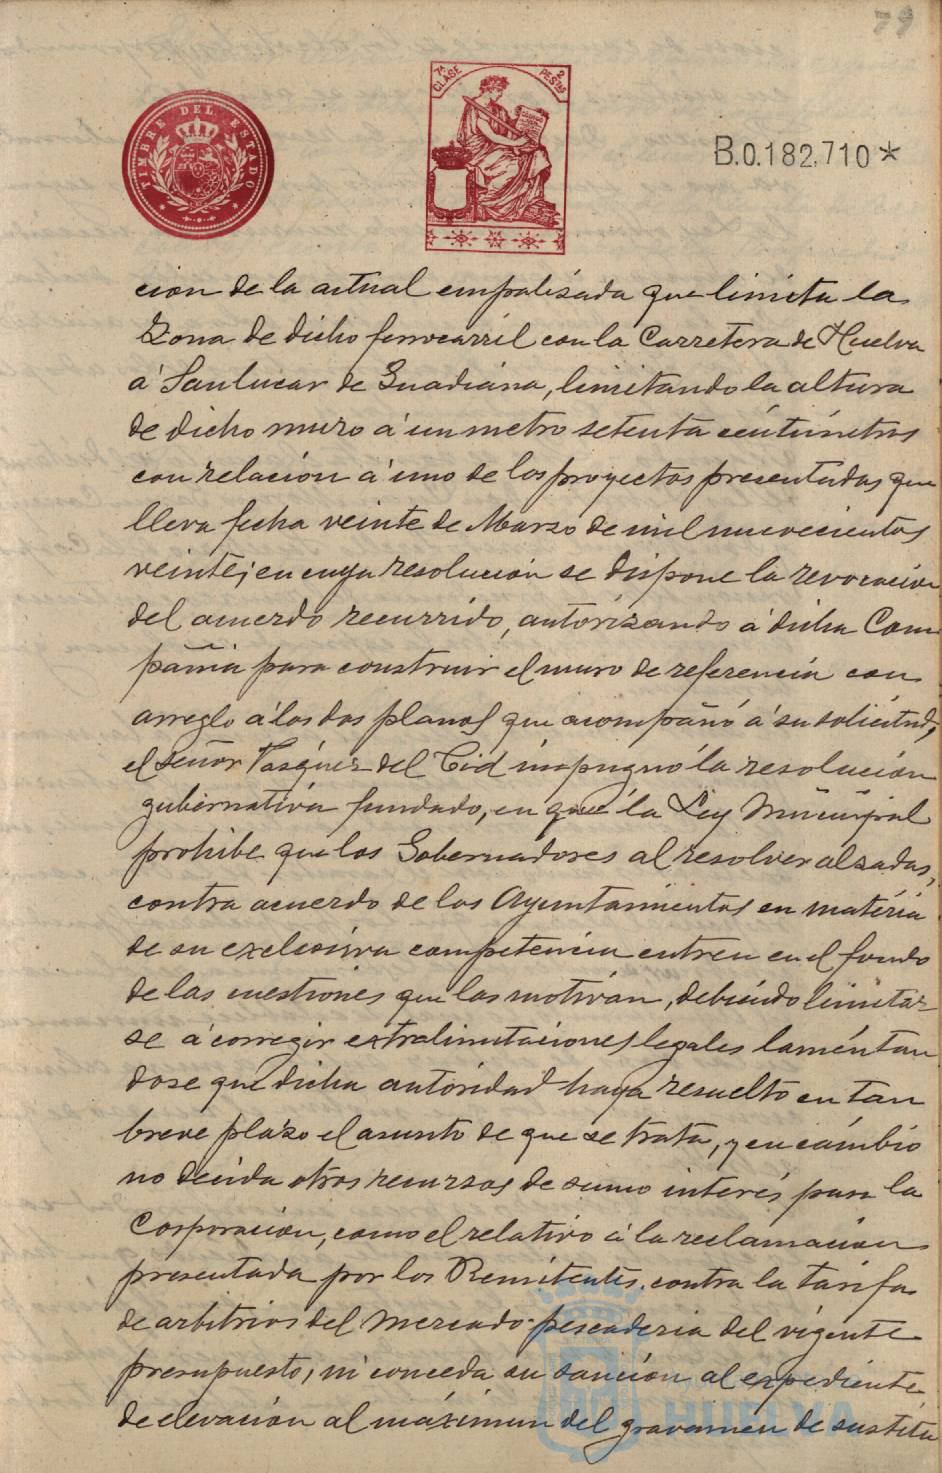 79
TIMBRE DEL ESTADO
7ª CLASE 2 PESTAS
B.0.182,710*
cion de la actual empalizada que limita la
Zona de dicho ferrocarril con la Carretera de Huelva
á Sanlucar de Guadiana, limitando la altura
de dicho muro á un metro setenta céntimetros
con relacion á uno de los proyectos presentados que
lleva fecha veinte de Marzo de mil nuevecientos
veinte; en cuya resolucion se dispone la revocacion
del acuerdo recurrido, autorizando á dicha Com
pañia para construir el muro de referencia con
arreglo á los dos planos que acompañó á su solicitud,
el señor Vasquez del Cid impugnó la resolucion
gubernativa fundado, en que la Ley Municipal
prohibe que los Gobernadores al resolver alzadas,
contra acuerdo de los Ayuntamientos en materia
de su exclusiva competencia entren en el fondo
de las cuestiones que las motivan, debiendo limitar
se á corregir extralimitaciones legales lamentan
dose que dicha autoridad haya resuelto en tan
breve plazo el asunto de que se trata, y en cambio
no decida otros recursos de sumo interés para la
Corporacion, como el relativo á la reclamacion
presentada por los Remitentes contra la tarifa
de arbitrios del Mercado-pescaderia del vigente
presupuesto, ni conceda su sancion al expediente
de elevacion al máximun del gravamen de sustitu
HUELVA